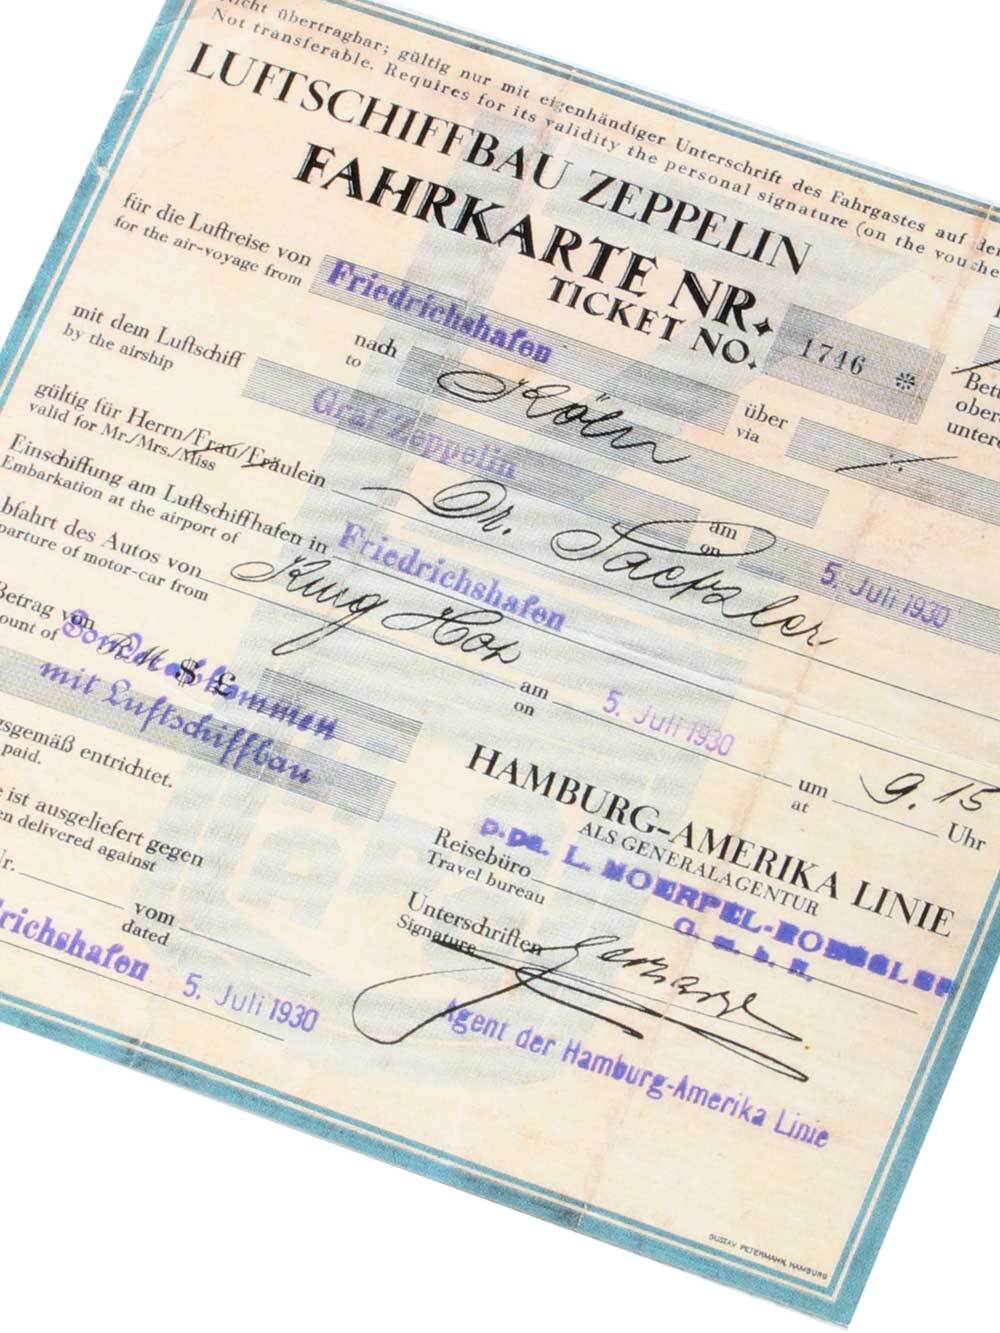 Nicht übertragbar; gültig nur mit eigenhändiger Unterschrift des Fahrgastes auf
Not transferable. Requires for its validity the personal signature (on the
LUFTSCHIFFBAU ZEPPELIN
FAHRKARTE NR.
TICKET NO.
1746 *
für die Luftreise von Friedrichshafen nach Köln über ./.
for the air-voyage from to via
mit dem Luftschiff Graf Zeppelin am 5. Juli 1930
by the airship on
gültig für Herrn/Frau/Fräulein Dr.
valid for Mr./Mrs./Miss
Einschiffung am Luftschiffhafen in Friedrichshafen
Embarkation at the airport of
bfahrt des Autos von am 5. Juli 1930 um 9.15 Uhr
parture of motor-car from on at
Betrag von RM $ £
ount of
mit Luftschiffbau
sgemäß entrichtet.
paid.
HAMBURG-AMERIKA LINIE
ALS GENERALAGENTUR
e ist ausgeliefert gegen
en delivered against
Reisebüro
Travel bureau
G. m. b. H.
Nr. vom
dated
Unterschriften
Signature
drichshafen 5. Juli 1930
Agent der Hamburg-Amerika Linie
GUSTAV PETERMANN, HAMBURG
Betr
ober
unter